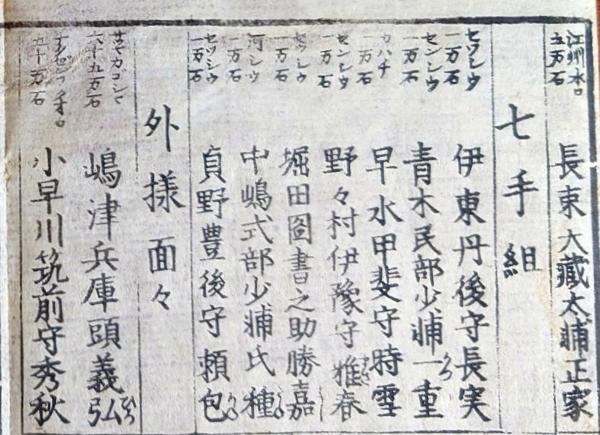 江州水口
五万石
長束大藏太輔正家
七手組
セツシウ
一万石
伊東丹後守長実
センシウ
一万石
青木民部少輔一重
カハチ
一万石
早水甲斐守時雪
センシウ
一万石
野々村伊豫守雅春
セツシウ
一万石
堀田図書之助勝嘉
河シウ
一万石
中嶋式部少輔氏種
セツシウ
一万石
貞野豊後守頼包
外様面々
サツマカゴシマ
六十五万石
嶋津兵庫頭義弘
五十万石
小早川筑前守秀秋